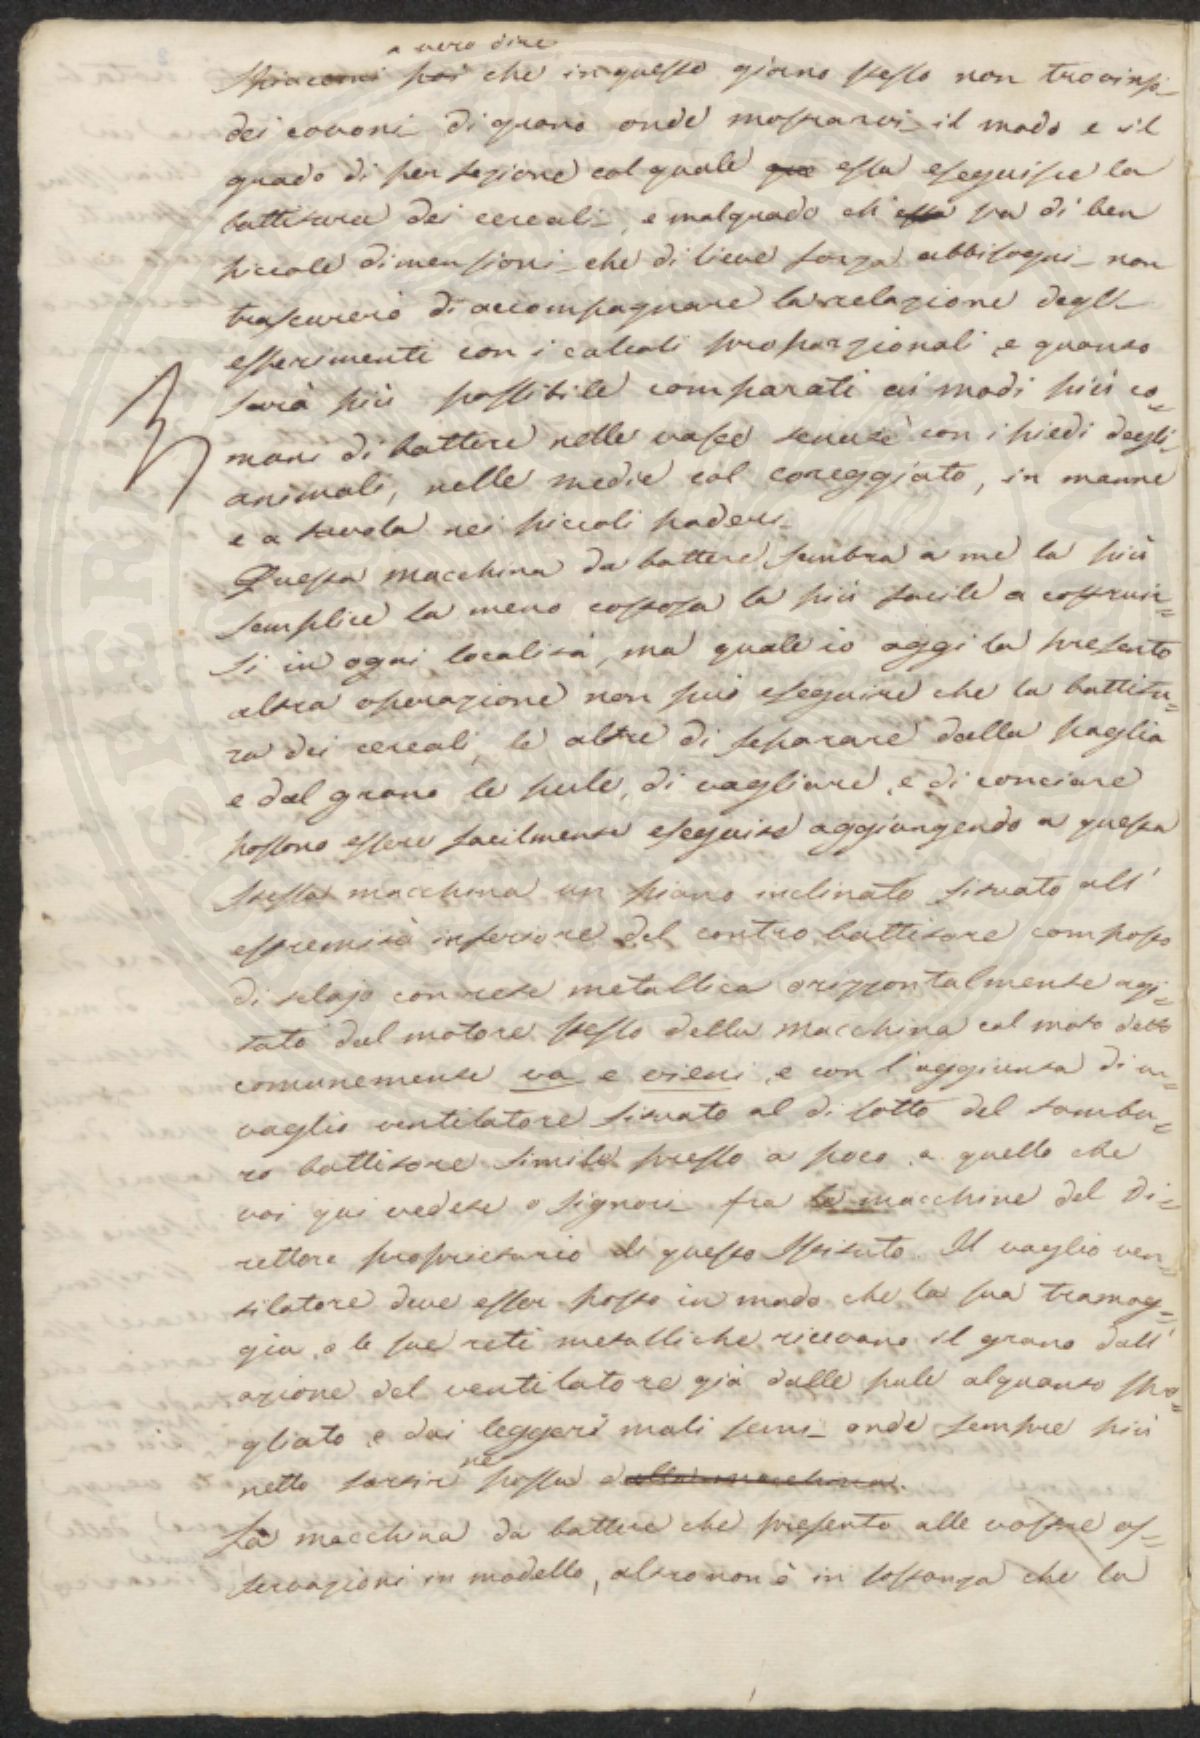 a vero dire
Spiacemi poi che in questo giorno stesso non trovinsi
dei covoni di grano onde mostrarvi il modo e il
grado di perfezione col quale que essa eseguisce la
battitura dei cereali, e malgrado ch'essa sia di ben
piccole dimensioni che di lieve forza abbisogni non
trascurerò di accompagnare la relazione degli
esperimenti con i calcoli proporzionali e quanto
sarà più possibile comparati ai modi più co=
muni di battere nelle vaste tenute con i piedi degli
animali, nelle medie col coreggiato, in manne
e a tavola nei piccoli poderi
Questa macchina da battere sembra a me la più
semplice la meno costosa la più facile a costruir=
si in ogni località, ma quale io oggi la presento
altra operazione non può eseguire che la battitu=
ra dei cereali, le altre di separare dalla paglia
e dal grano le pule, di vagliare, e di conciare
possono essere facilmente eseguite aggiungendo a questa
stessa macchina un piano inclinato situato all'
estremità inferiore del contro battitore composto
di telajo con rete metallica orizzontalmente agi=
tato dal motore stesso della macchina col moto detto
comunemente va e vieni, e con l'aggiunta di un=
vaglio ventilatore situato al di sotto del tambu=
ro battitore simile presso a poco a quello che
voi qui vedete o signori fra le macchine del Di=
rettore proprietario di questo Istituto. Il vaglio ven=
tilatore deve esser posto in modo che la sua tramog=
gia, o le sue reti metalliche ricevano il grano dall'
azione del ventilatore già dalle pule alquanto spo=
gliato e dai leggeri mali semi onde sempre più
ne
netto sortir possa dalla macchina.
La macchina da battere che presento alle vostre os=
servazioni in modello, altro non è in sostanza che la